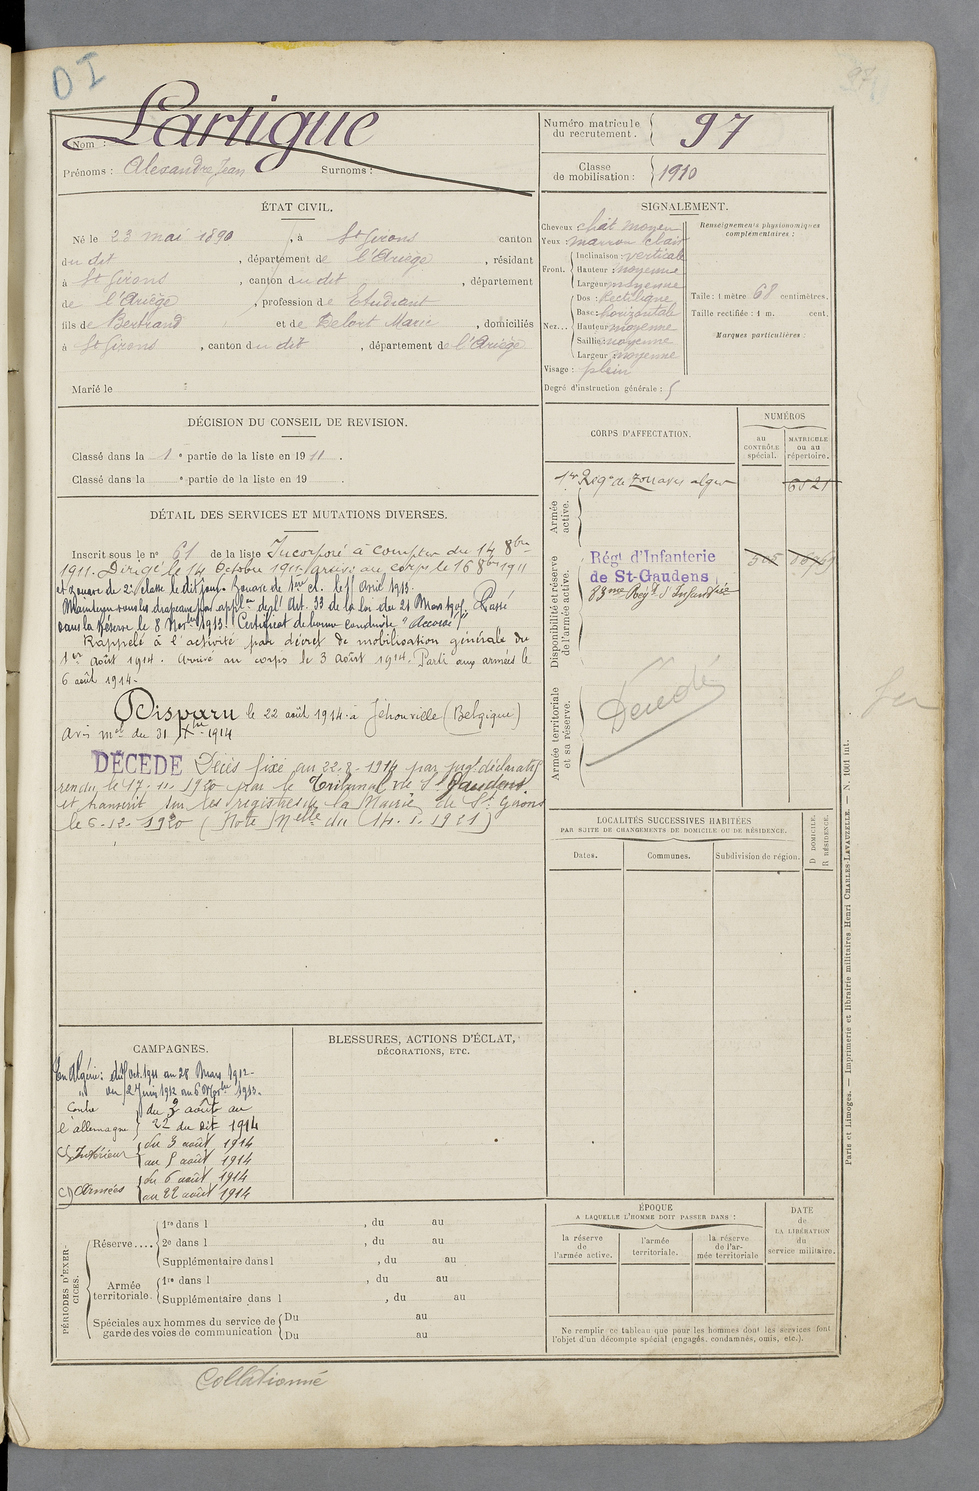 D I
97
Nom : Lartigue
Prénoms : Alexandre Jean Surnoms :
Numéro matricule du recrutement. 97
Classe de mobilisation : 1910
ÉTAT CIVIL.
Né le 23 mai 1890, à St Girons canton
du dit, département de l'Ariège, résidant
à St Girons, canton du dit, département
de l'Ariège, profession de Etudiant
fils de Bertrand et de Delort Marie, domiciliés
à St Girons, canton du dit, département de l'Ariège
Marié le
SIGNALEMENT.
Cheveux : chât moyen
Yeux : marron clair
Front. Inclinaison : verticale
Hauteur : moyenne
Largeur : moyenne
Nez... Dos : Rectiligne
Base : horizontale
Hauteur : moyenne
Saillie : moyenne
Largeur : moyenne
Visage : plein
Degré d'instruction générale : 5
Renseignements physionomiques complémentaires :
Taille : 1 mètre 68 centimètres.
Taille rectifiée : 1 m. cent.
Marques particulières :
DÉCISION DU CONSEIL DE REVISION.
Classé dans la 1e partie de la liste en 1911.
Classé dans la e partie de la liste en 19 .
DÉTAIL DES SERVICES ET MUTATIONS DIVERSES.
Inscrit sous le no 61 de la liste Incorporé à compter du 14 8bre
1911. Dirigé le 14 Octobre 1911. Arrivé au corps le 16 8bre 1911
et Zouave de 2e classe le dit jour. Zouave de 1ère cl. le 1 Avril 1913.
Maintenu sous les drapeaux par applon de l'Art. 33 de la Loi du 21 Mars 1905. Passé
dans la Réserve le 8 Novbre 1913. Certificat de bonne conduite "Accordé"
Rappelé à l'activité par décret de mobilisation générale du
1er août 1914. Arrivé au corps le 3 août 1914. Parti aux armées le
6 août 1914.
Disparu le 22 août 1914 à Jehonville (Belgique)
Avis mel du 31 Xbre 1914
DÉCÉDÉ Décès fixé au 22.8.1914 par jugt déclaratif
rendu le 17.11.1920 par le Tribunal de St Gaudens
et transcrit sur les registres de la Mairie de St Girons
le 6.12.1920 (Note Mnelle du 14.1.1921)
CORPS D'AFFECTATION.
NUMÉROS
au CONTRÔLE spécial.
MATRICULE ou au répertoire.
Armée active.
1er Régt de Zouaves Alger 6821
Disponibilité et réserve de l'armée active.
Régt d'Infanterie
de St-Gaudens
83me Régt d'Infanterie
Armée territoriale et sa réserve.
Décédé
LOCALITÉS SUCCESSIVES HABITÉES
PAR SUITE DE CHANGEMENTS DE DOMICILE OU DE RÉSIDENCE.
Dates.
Communes.
Subdivision de région.
D DOMICILE.
R RÉSIDENCE.
CAMPAGNES.
En Algérie : du Oct. 1911 au 28 Mars 1912.
" du 2 Juin 1912 au 6 Novbre 1913.
Contre l'allemagne du 3 août au
22 du dit 1914
C) Intérieur du 3 août 1914
au 5 août 1914
C) Armées du 6 août 1914
au 22 août 1914
BLESSURES, ACTIONS D'ÉCLAT,
DÉCORATIONS, ETC.
PÉRIODES D'EXERCICES.
Réserve.... 1re dans l , du au
2e dans l , du au
Supplémentaire dans l , du au
Armée territoriale. 1re dans l , du au
Supplémentaire dans l , du au
Spéciales aux hommes du service de garde des voies de communication Du au
Du au
ÉPOQUE
A LAQUELLE L'HOMME DOIT PASSER DANS :
la réserve de l'armée active.
l'armée territoriale.
la réserve de l'armée territoriale
DATE de LA LIBÉRATION du service militaire.
Ne remplir ce tableau que pour les hommes dont les services font
l'objet d'un décompte spécial (engagés, condamnés, omis, etc.).
Paris et Limoges. — Imprimerie et librairie militaires Henri CHARLES-LAVAUZELLE. — N. 1001 int.
Collationné